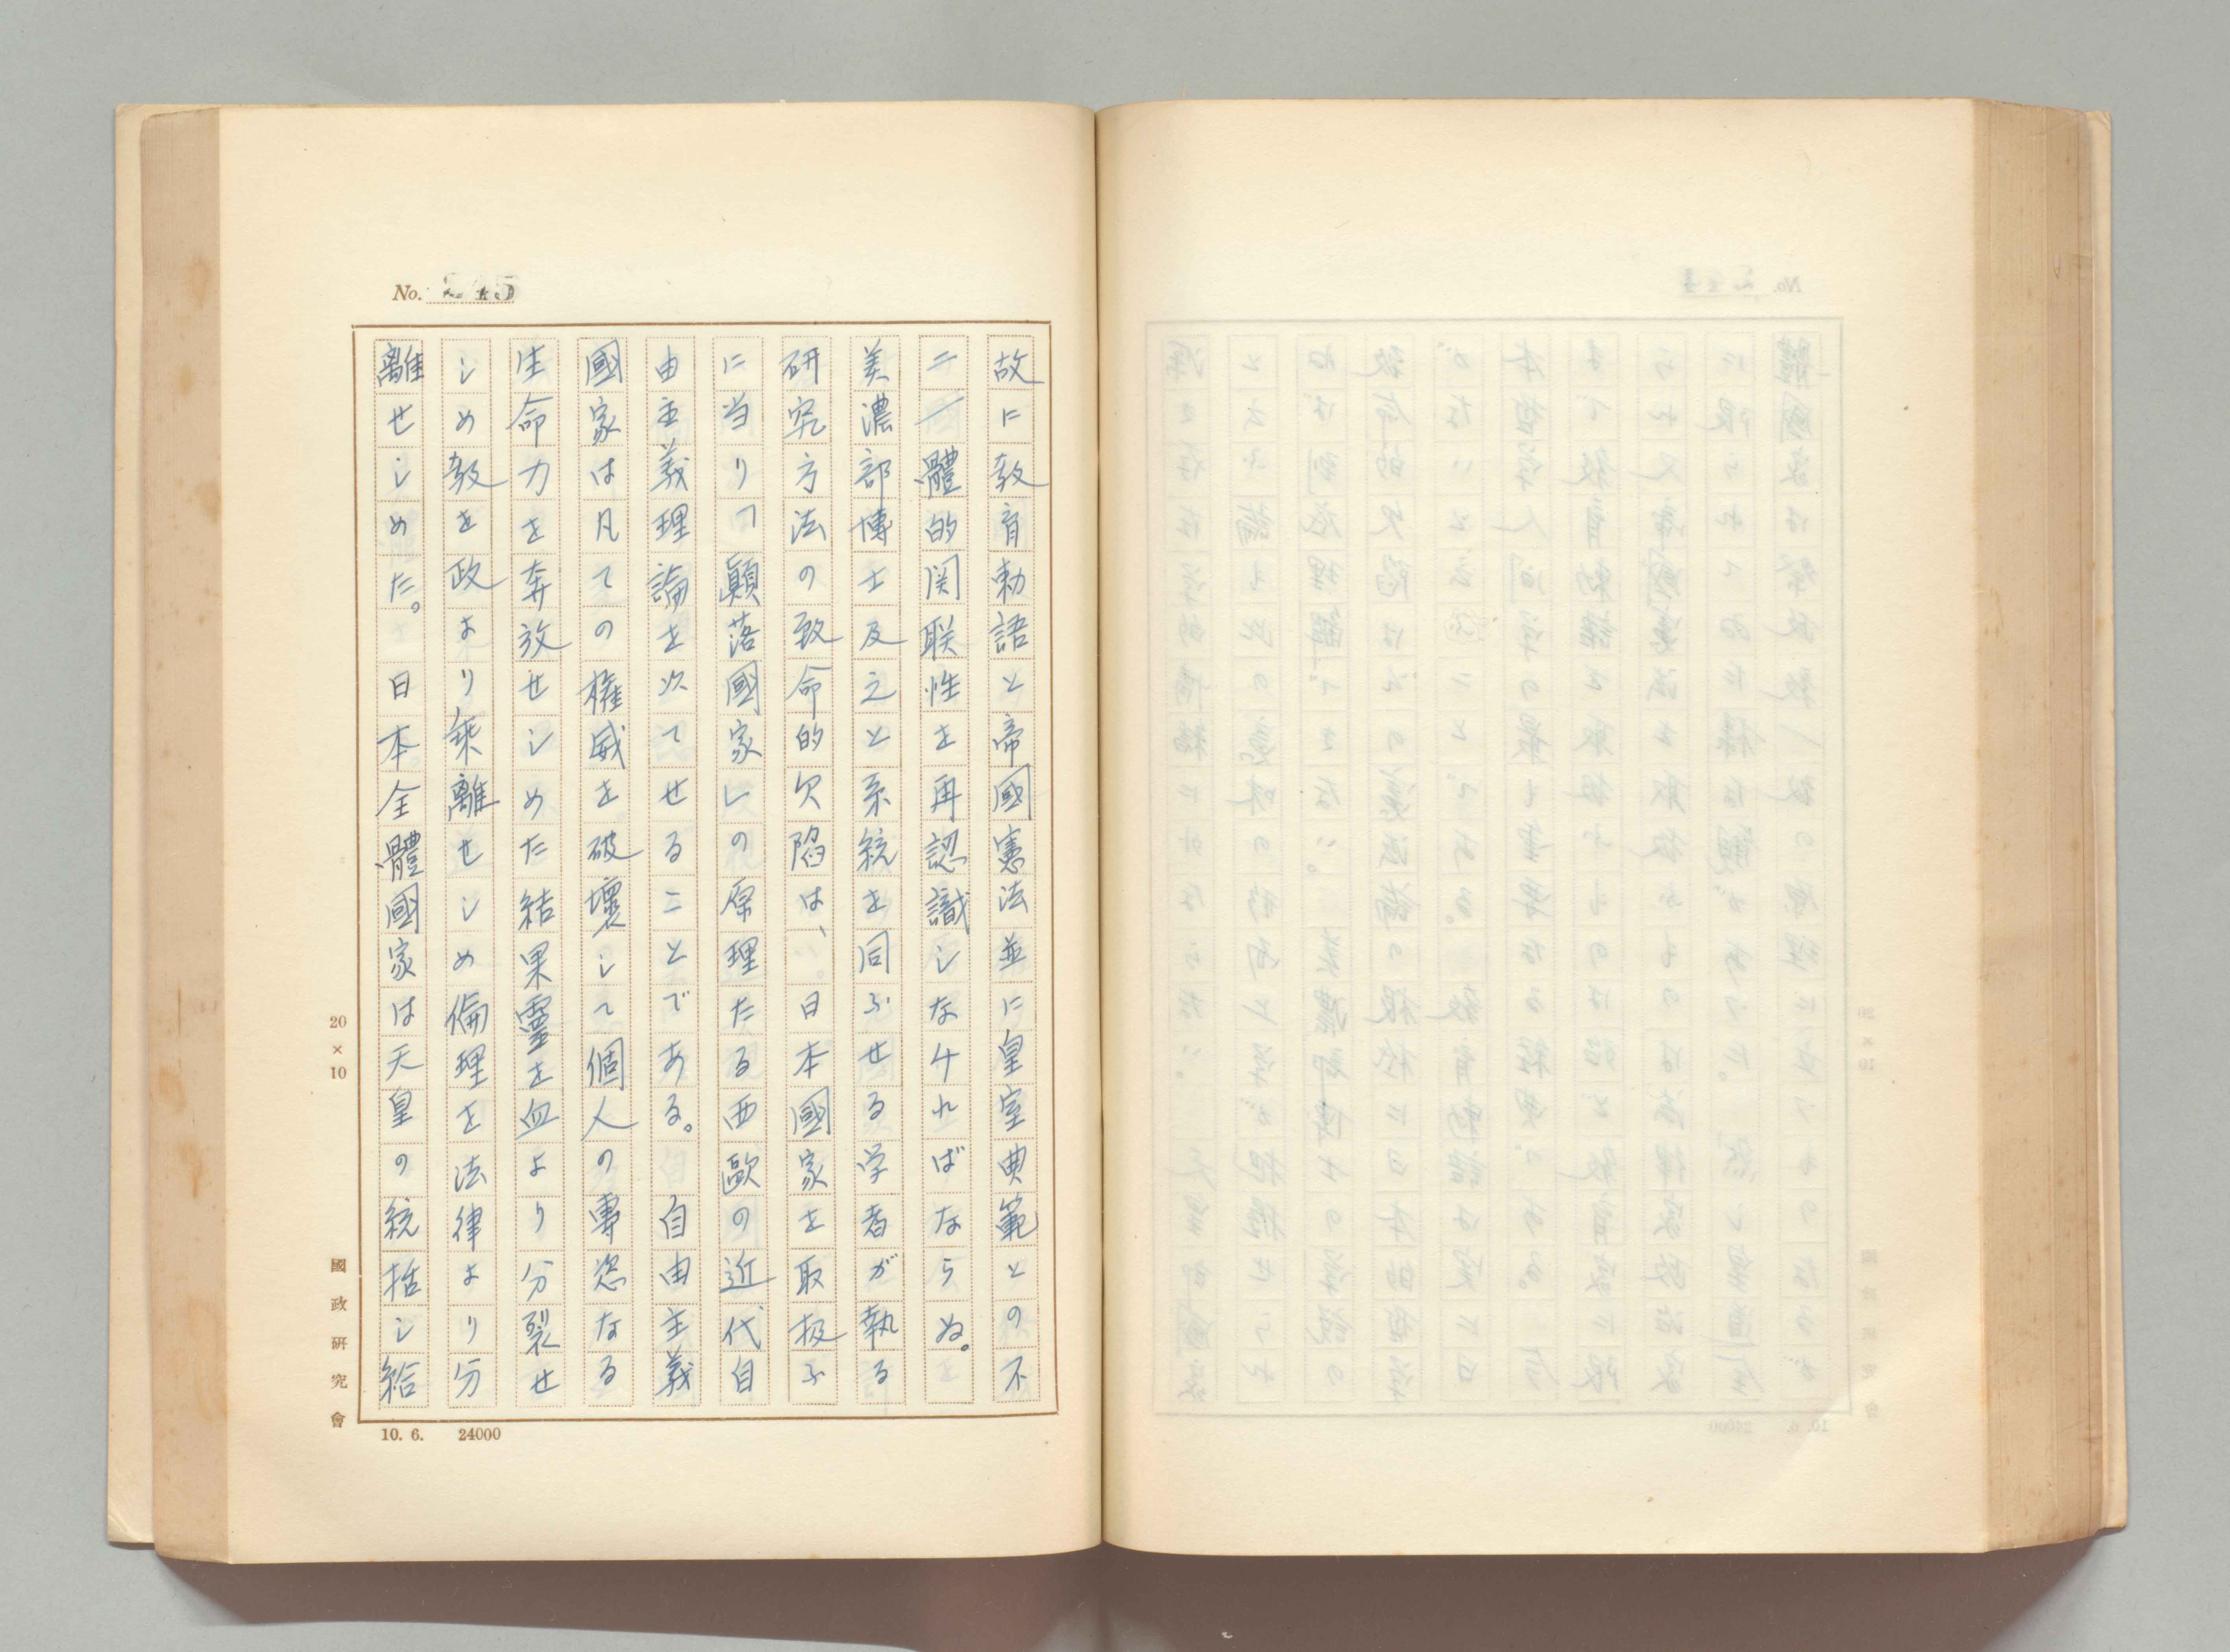 No. 245
故に教育勅語と帝國憲法並に皇室典範との不
二一體的関联性を再認識しなければならぬ。
美濃部博士及之と系統を同ふせる学者が執る
研究方法の致命的欠陥は、日本國家を取扱ふ
に当り「顛落國家」の原理たる西歐の近代自
由主義理論を次てせることである。自由主義
國家は凡ての権威を破壞して個人の專恣なる
生命力を奔放せしめた結果靈を血より分裂せ
しめ教を政より乖離せしめ倫理を法律より分
離せしめた。日本全體國家は天皇の統括し給
20×10
國政研究會
10. 6. 24000